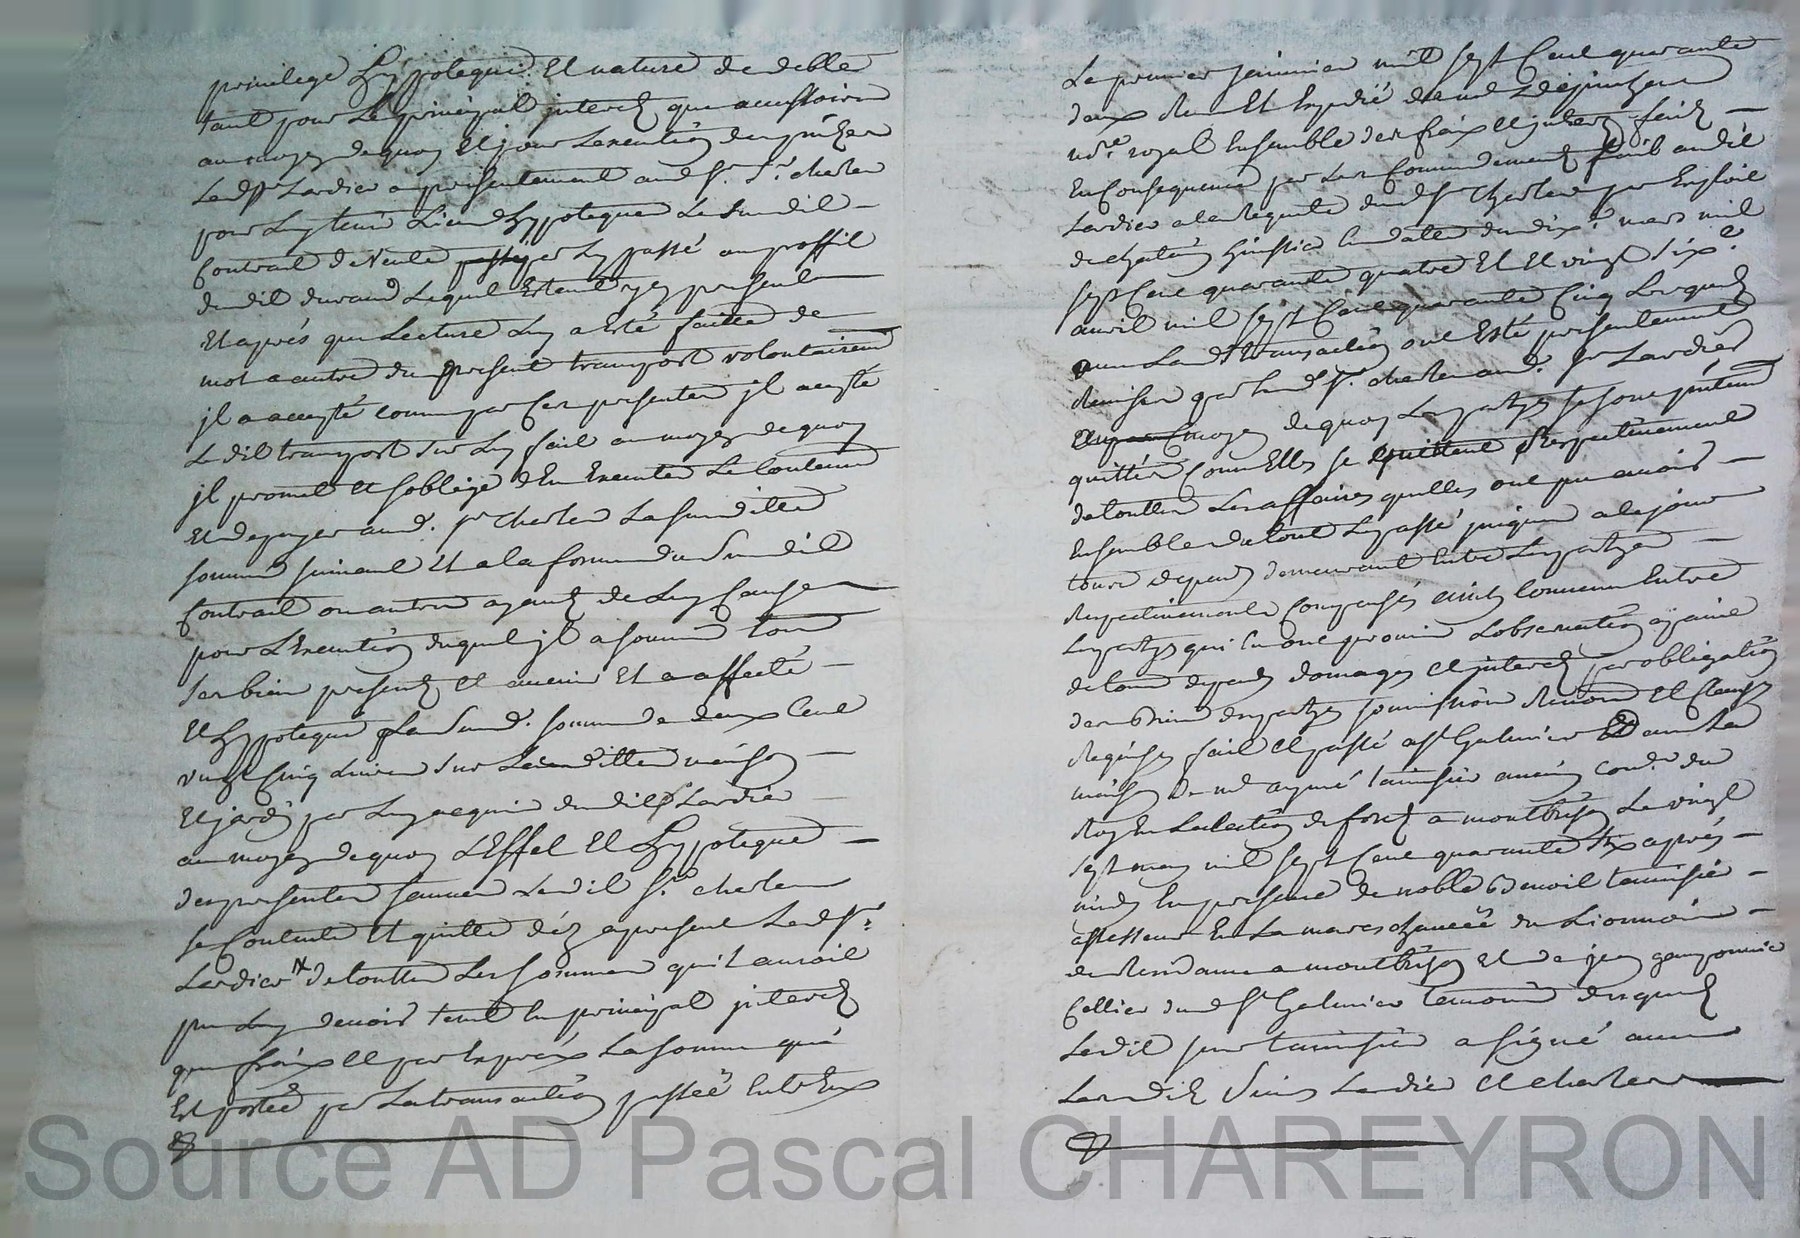 privilege hÿppoteque Et nature de debte
tant pour Le principal jnterets que accessoires
au moyen de quoy Et pour Lexecution des p͞ntes
Led sr Lardier a presentement aud sr. Charles
pour Luy tenir Lieu dhyppoteque Le Susdit
Contrait de Vente par Luy passé au proffit
dudit durand Lequel Estant ycy present
Et aprés que Lecture Luy a Esté faitte de
mot a autre du present transport volontairement
jl a accepté comme par Ces presentes jl accepte
Ledit transport sur Luy fait au moyen de quoy
jl promet Et soblige dEn Executer Le Contenu
Et de payer aud. sr Charles La susditte
somme suivant Et a la forme du Susdit
Contrait ou autres ayants de Luy Cause
pour LExecution duquel jl a soumis tous
ses biens presents Et avenir Et a affecté
Et hyppotequé La Susd. somme de deux Cent
vingt Cinq Livres sur Laditte maison
Et jardin par Luy acquis dudit sr Lardier
au moyen de quoy LEffet Et hyppoteque
des presentes sauves Ledit sr. Charles
se Contente Et quitte déz apresent Led sr.
Lardier de touttes Les sommes quil auroit
pu Luy devoir tant En principal jnterets
que fraix Et par Exprés La somme qui
Est portée par La transaction passée Entr Eux
Le premier janvier mil sept Cent quarante
deux Reçu Et Expedié
nore. royal Ensemble des fraix Et jnterets faits
En Consequence par Les Commandements fait audit
Lardier a la Requete dud sr Charles par Exploit
de Chatain huissier En datte du dixe. mars mil
sept Cent quarante quatre Et Et vingt sixe.
avril mil sept Cent quarante Cinq Lesquels
avec Lad transaction ont Esté presentement
Remises par Led sr. Charles aud. sr Lardier
moyen de quoy Les partyes se sont p͞ntement
quittés Comme Elles se quittent Respectivement
de touttes Les affaires quelles ont pu avoir
Ensemble de tout Le passé jusques a le jour
tous depens demeurant Entre Les partyes
Respectivement Compensés ainsy Convenu Entre
Les partyes qui En ont promis Lobservation a peine
de tous depens domages Et jnterets par obligation
des biens des partyes soumission Renonc Et Clauses
Requises fait Et passé a st Galmier dans La
maison de me aymé tamisier ancien Conser du
Roy En Lelection de forets a montbrison Le vingt
sept may mil sept Cent quarante six aprés
midy En presence de noble Benoit tamisié
assesseur En La marechaucée du Lionnois
de Residance a montbrison Et de jean
Cellier dud st Galmier temoins desquels
Ledit sieur tamisier a signé avec
Lesdits Srs Lardier Et Charles
Source AD Pascal CHAREYRON